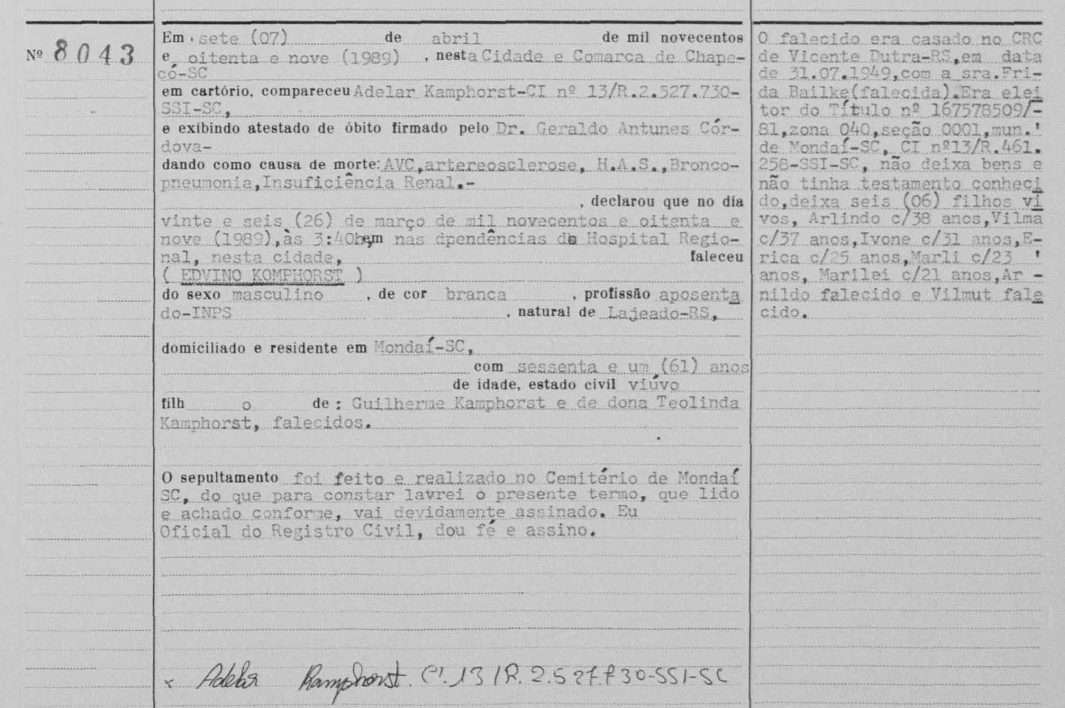 Nº 8043
Em sete (07) de abril de mil novecentos
e oitenta e nove (1989) , nesta Cidade e Comarca de Chape-
có-SC
em cartório, compareceu Adelar Kamphorst-CI nº 13/R.2.527.730-
SSI-SC,
e exibindo atestado de óbito firmado pelo Dr. Geraldo Antunes Cór-
dova-
dando como causa de morte: AVC,artereosclerose, H.A.S.,Bronco-
pneumonia,Insuficiência Renal.-
, declarou que no dia
vinte e seis (26) de março de mil novecentos e oitenta e
nove (1989),às 3:40h em nas dpendências do Hospital Regio-
nal, nesta cidade, faleceu
( EDVINO KOMPHORST )
do sexo masculino , de cor branca , profissão aposenta
do-INPS , natural de Lajeado-RS,
domiciliado e residente em Mondaí-SC,
com sessenta e um (61) anos
de idade, estado civil viúvo
filh o de : Guilherme Kamphorst e de dona Teolinda
Kamphorst, falecidos.
O sepultamento foi feito e realizado no Cemitério de Mondaí
SC, do que para constar lavrei o presente termo, que lido
e achado conforme, vai devidamente assinado. Eu
Oficial do Registro Civil, dou fé e assino.
x Adelar Kamphorst. CI.13/R.2.527.730-SSI-SC
O falecido era casado no CRC
de Vicente Dutra-RS,em data
de 31.07.1949,com a sra.Fri-
da Bailke(falecida).Era elei
tor do Título nº 167578509/-
81,zona 040,seção 0001,mun.'
de Mondaí-SC, CI nº13/R.461.
258-SSI-SC, não deixa bens e
não tinha testamento conheci
do,deixa seis (06) filhos vi
vos, Arlindo c/38 anos,Vilma
c/37 anos,Ivone c/31 anos,E-
rica c/25 anos,Marli c/23 '
anos, Marilei c/21 anos,Ar -
nildo falecido e Vilmut fale
cido.